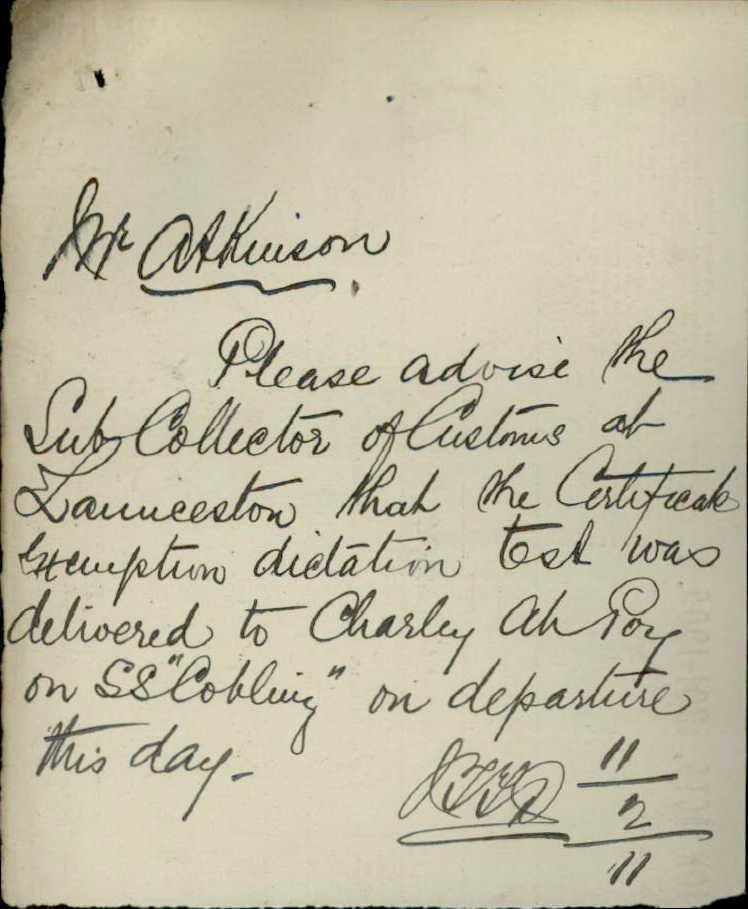 Mr Atkinson
Please advise the
Sub Collector of Customs at
Launceston that the Certificate
Exemption dictation test was
delivered to Charley Ah Poy
on SS "Coblenz" on departure
this day -
11
2
11